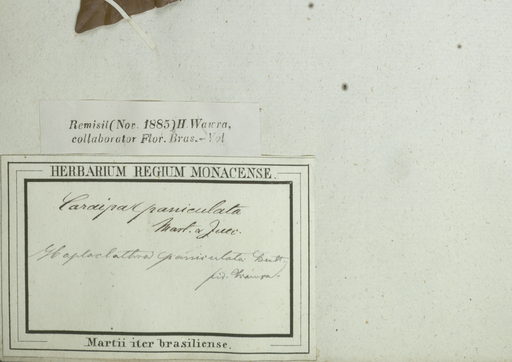 Remisit (Nov. 1885) H. Wawra,
collaborator Flor. Bras. — Vol
HERBARIUM REGIUM MONACENSE.
Caraipa paniculata
Mart. & Zucc.
Haploclathra paniculata Benth
fid. Wawra.
Martii iter brasiliense.